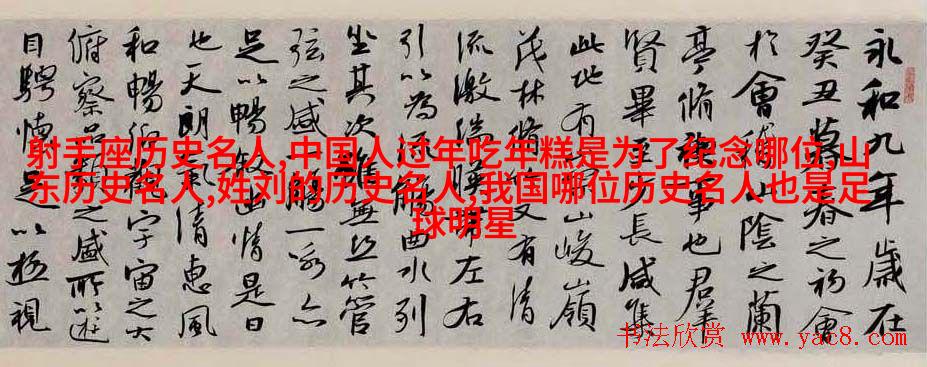 永和九年歲在
癸丑暮春之初會
於會稽山陰之蘭
亭脩禊事也群
賢畢至少長咸集
此地有崇山峻嶺
茂林脩竹又有清
流激湍暎帶左右
引以為流觴曲水列
坐其次雖無絲竹管
弦之盛一觴一詠亦
足以暢敘幽情是日
也天朗氣清惠風
和暢仰觀宇宙之大
俯察品類之盛所以遊
目騁懷足以極視
射手座历史名人,中国人过年吃年糕是为了纪念哪位,山
东历史名人,姓刘的历史名人,我国哪位历史名人也是足
球明星
书法欣赏 www.yac8.com